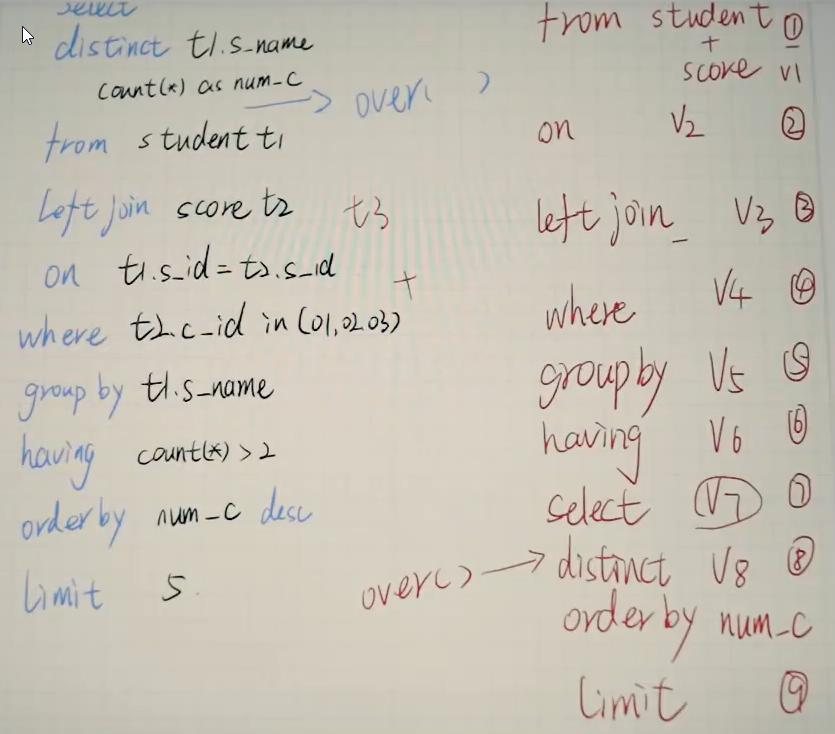 select
distinct t1.s_name
count(*) as num_c → over( )
from student t1
left join score t2 t3
on t1.s_id = t2.s_id +
where t2.c_id in (01,02,03)
group by t1.s_name
having count(*) > 2
order by num_c desc
limit 5
from student ①
+
score V1
on V2 ②
left join_ V3 ③
where V4 ④
group by V5 ⑤
having V6 ⑥
select V7 ⑦
over() → distinct V8 ⑧
order by num_c
limit ⑨